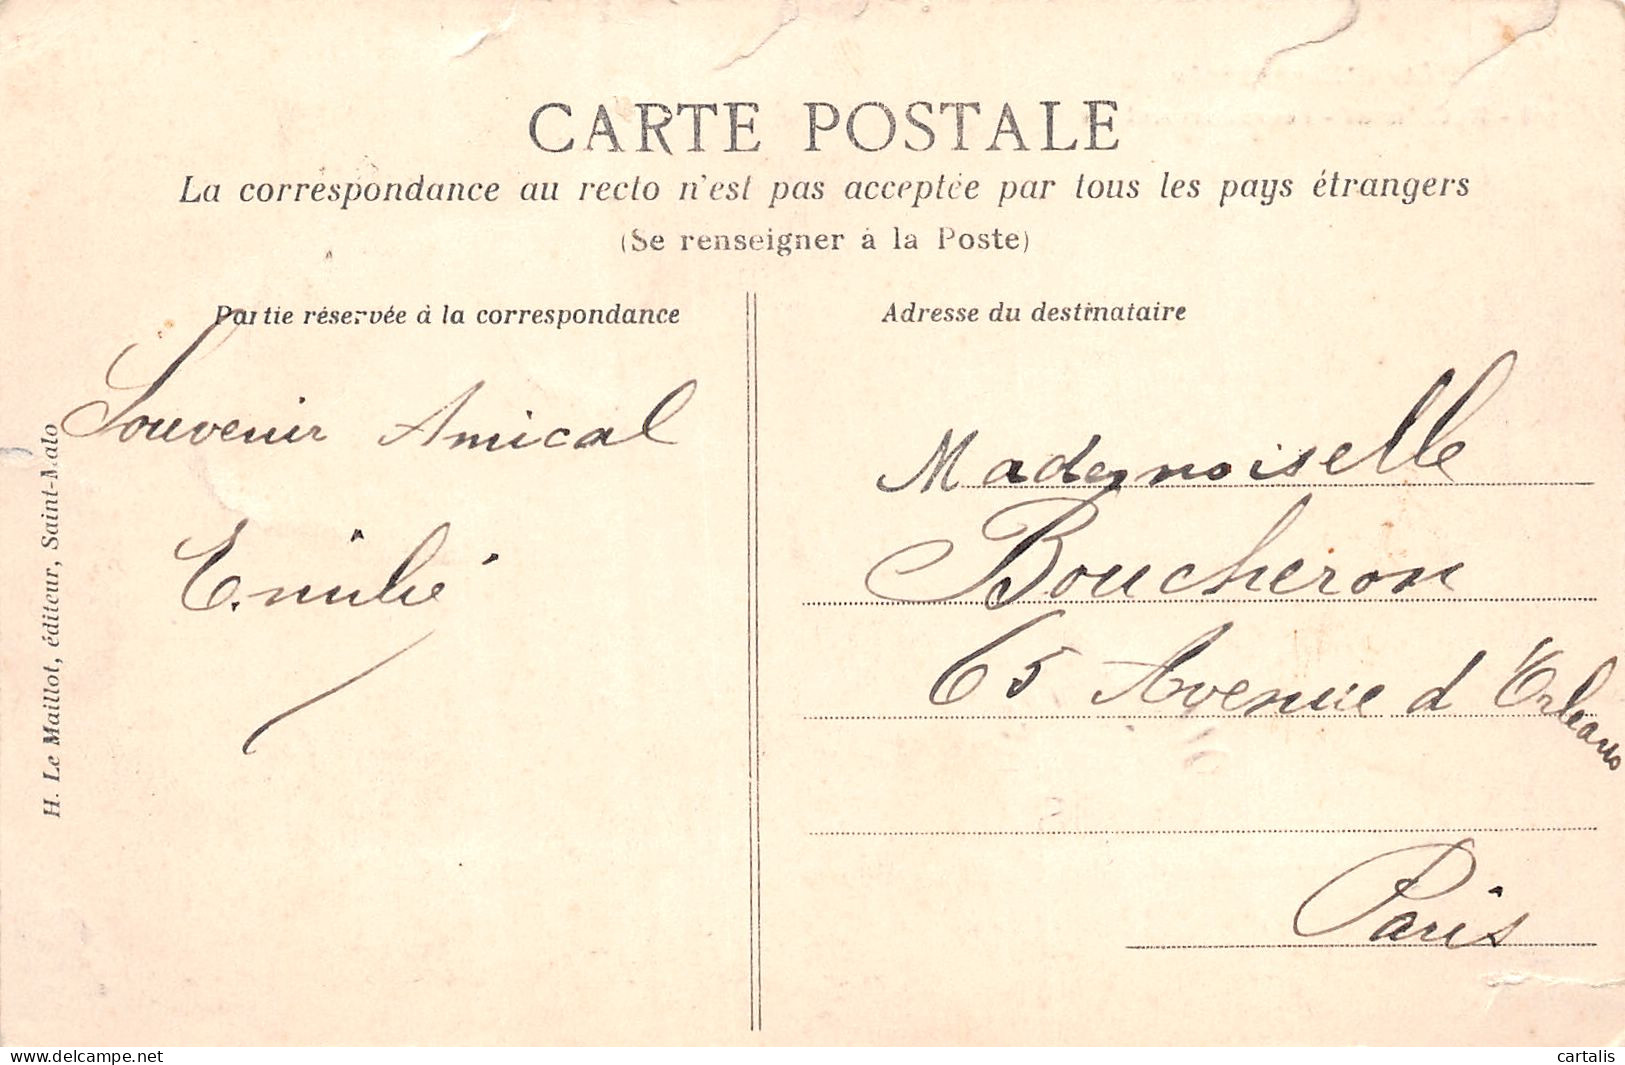 CARTE POSTALE
La correspondance au recto n'est pas acceptée par tous les pays étrangers
(Se renseigner à la Poste)
Partie réservée à la correspondance
Souvenir Amical
Emilie
H. Le Maillot, éditeur, Saint-Malo
Adresse du destinataire
Mademoiselle
Boucheron
65 Avenue d'Orléans
Paris
www.delcampe.net
cartalis